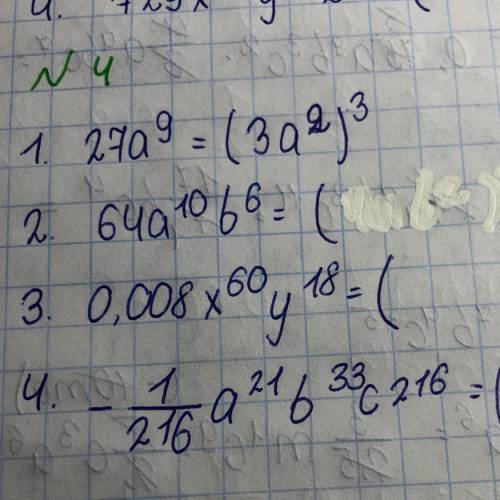 N 4
1. 27a⁹ = (3a²)³
2. 64a¹⁰b⁶ = (
3. 0,008x⁶⁰y¹⁸ = (
4. - 1/216 a²¹b³³c²¹⁶ = (